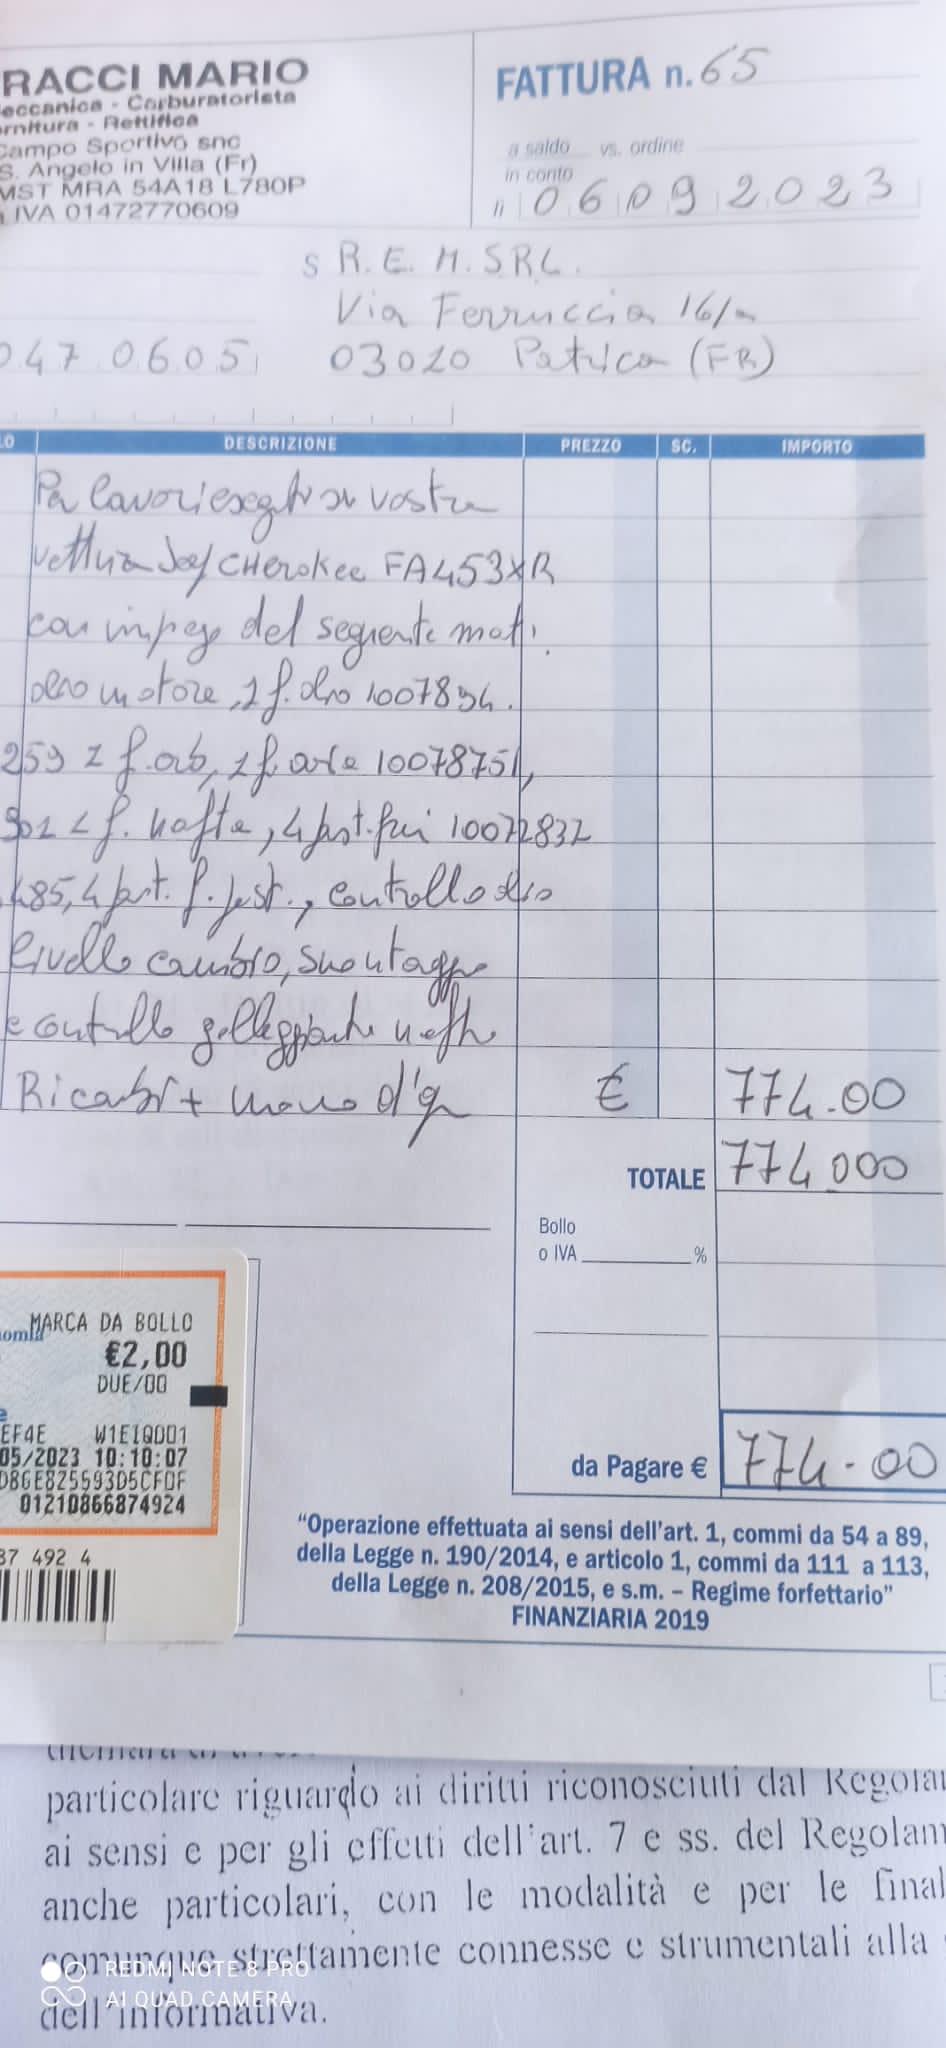 RACCI MARIO
eccanica - Carburatorista
ornitura - Rettifica
Campo Sportivo snc
S. Angelo in Villa (Fr)
MST MRA 54A18 L780P
IVA 01472770609
FATTURA n. 65
a saldo vs. ordine
in conto
06092023
S R.E.M. SRL.
Via Ferruccia 16/a
047 0605 03020 Patrica (FR)
LO DESCRIZIONE PREZZO SC. IMPORTO
Per lavori eseguiti su vostra
vettura Jeep CHerokee FA453XR
con impego del seguente mat.
olio motore, 1 f. olio 1007894.
259 1 f. ab, 1 f. aria 10078751,
1 f. nafta, 4 past. freni 10072832
485, 4 past. f. post., controllo olio
livello cambio, smontaggio
e controllo galleggiante nafta
Ricambi + mano d'op € 774.00
TOTALE 774000
Bollo
o IVA %
da Pagare € 774.00
MARCA DA BOLLO
omia
€2,00
DUE/00
EF4E W1EIQ001
05/2023 10:10:07
D86E825593D5CFDF
01210866874924
87 492 4
"Operazione effettuata ai sensi dell'art. 1, commi da 54 a 89,
della Legge n. 190/2014, e articolo 1, commi da 111 a 113,
della Legge n. 208/2015, e s.m. – Regime forfettario"
FINANZIARIA 2019
particolare riguardo ai diritti riconosciuti dal Regolam
ai sensi e per gli effetti dell'art. 7 e ss. del Regolam
anche particolari, con le modalità e per le final
comunque strettamente connesse e strumentali alla
dell'informativa.
REDMI NOTE 8 PRO
AI QUAD CAMERA